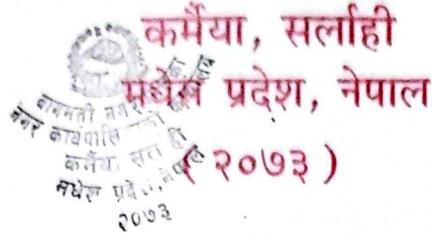 कर्मैया, सर्लाही
मधेश प्रदेश, नेपाल
(२०७३)
बागमती नगर
नगर कार्यपालि
कर्मैया, सर्लाही
मधेश प्रदेश, नेपाल
२०७३